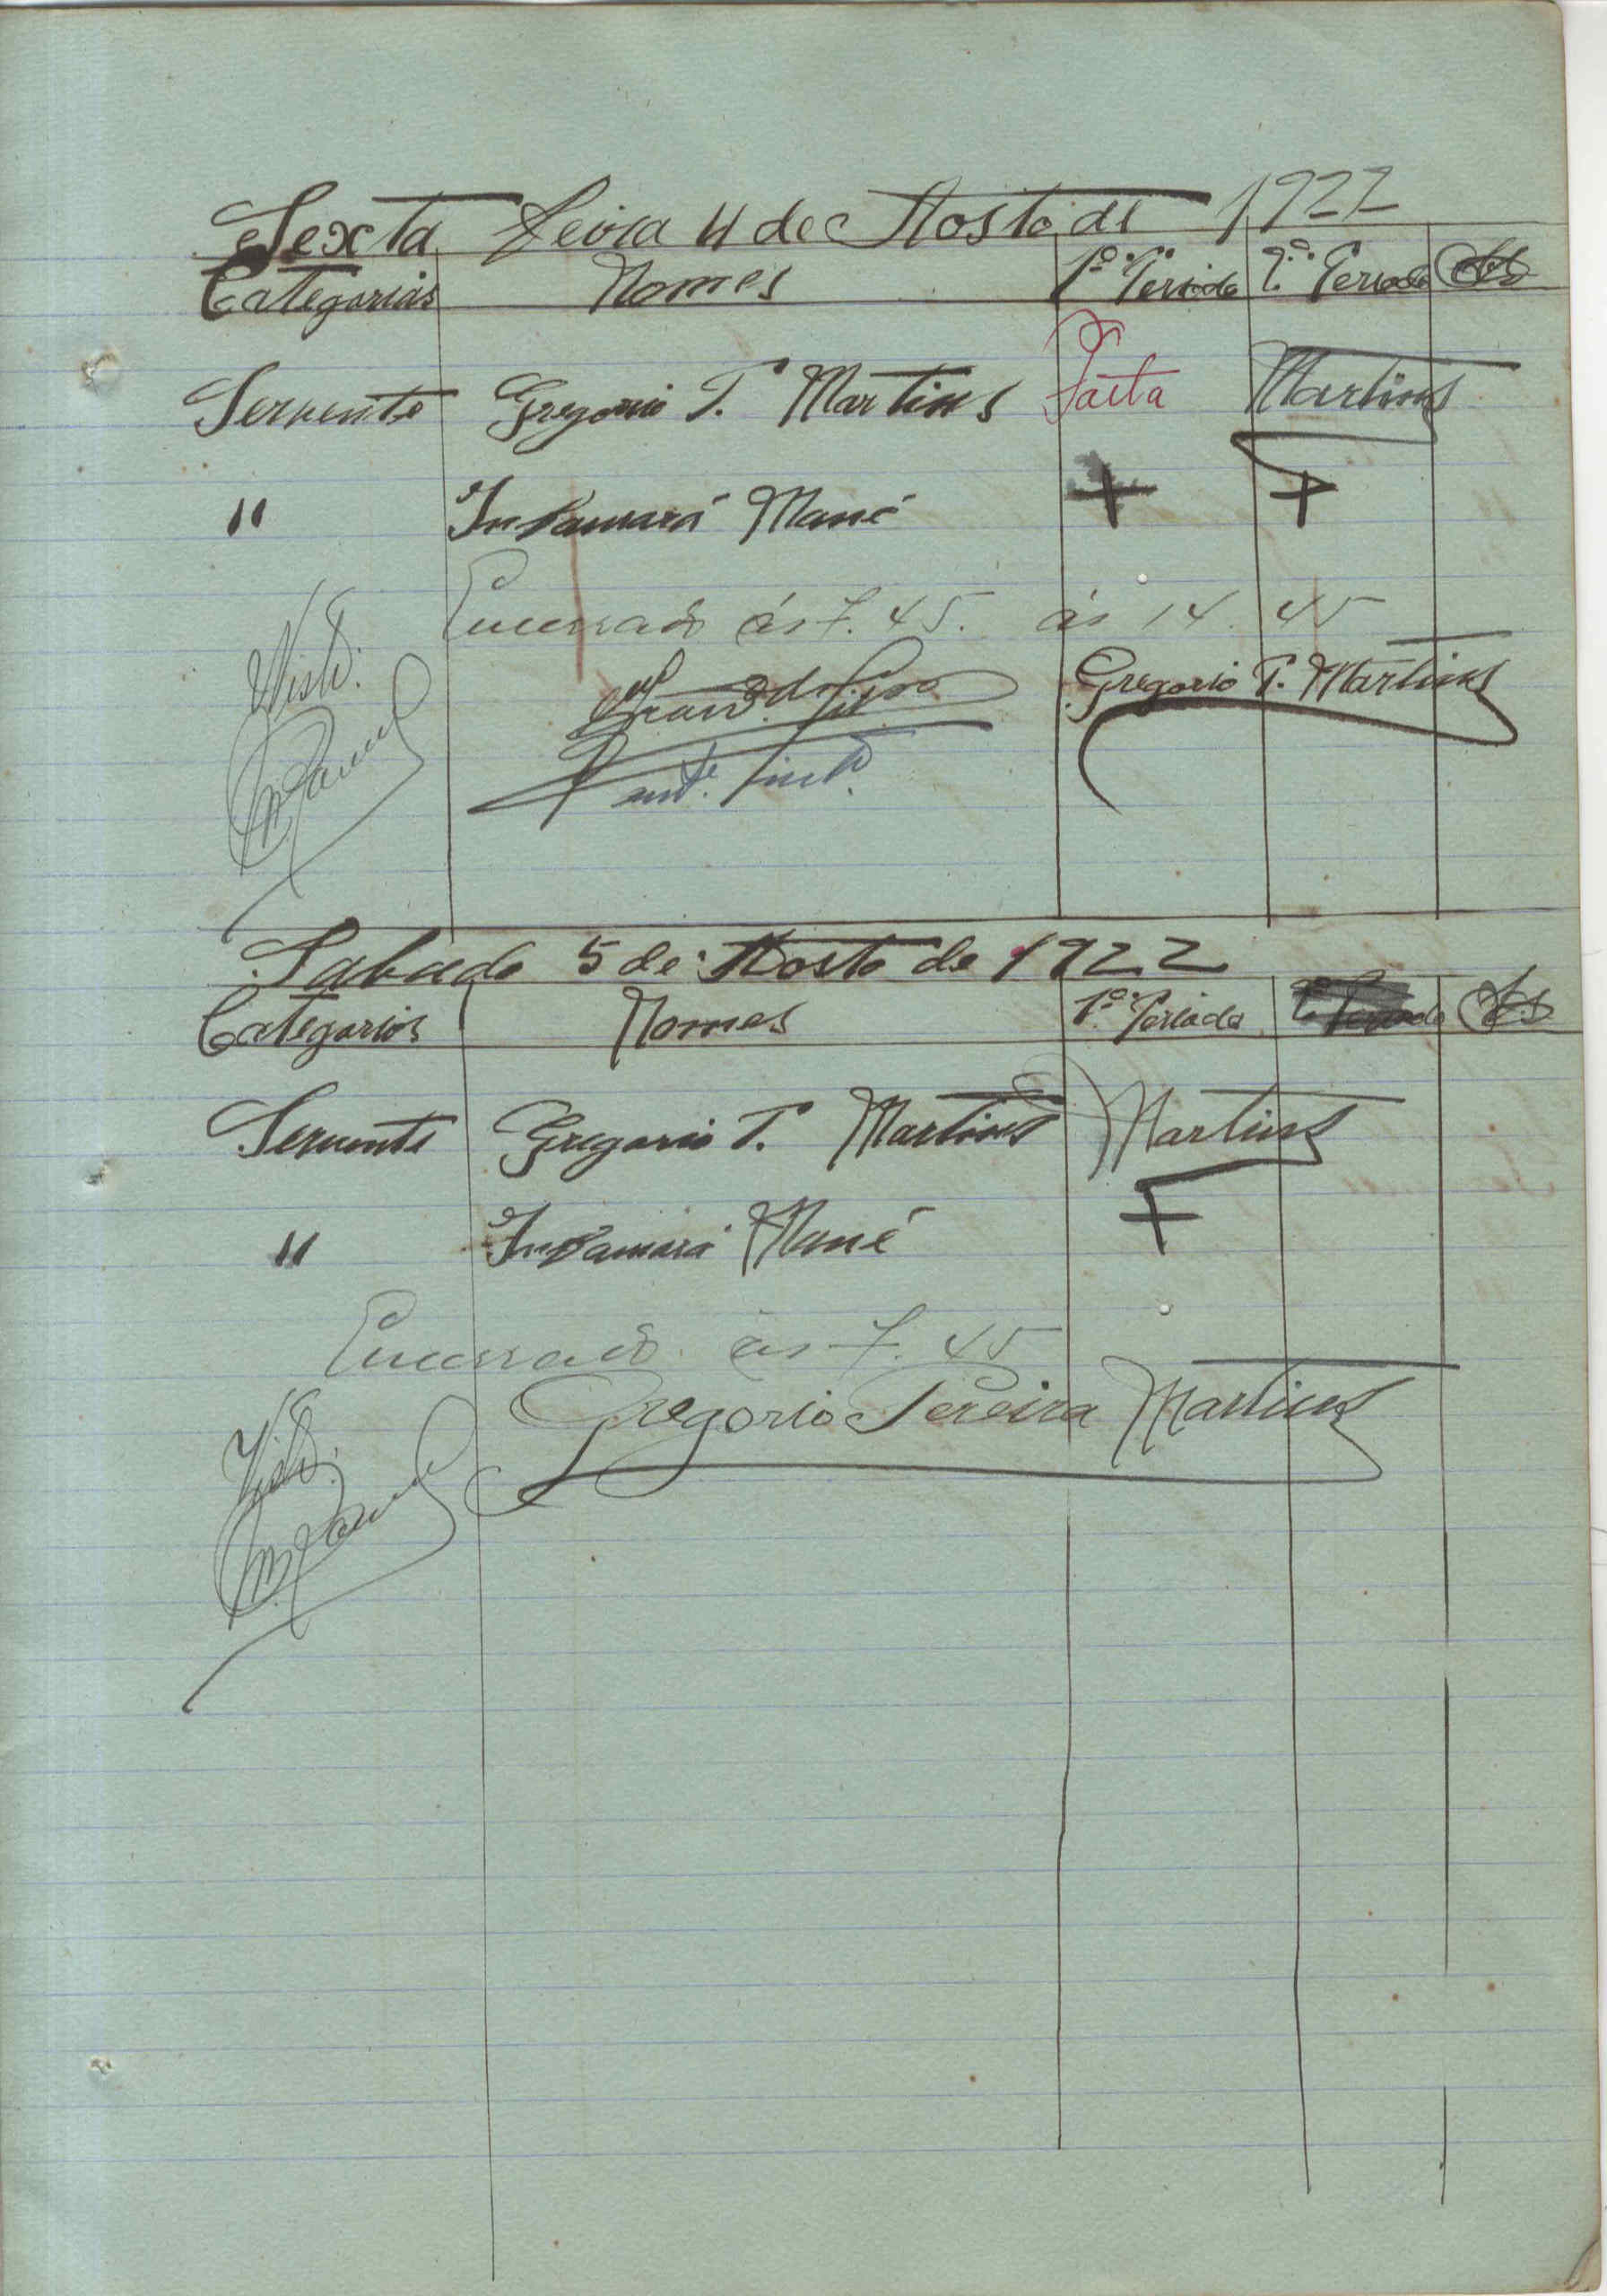 Sexta Feira 4 de Agosto de 1922
Categorias Nomes 1º Periodo 2º Periodo Obs
Servente Gregorio P. Martins Falta Martins
" Mané + +
Encerrado ás 7.45. ás 14.45
Visto.
Gregorio P. Martins
Sabado 5 de Agosto de 1922
Categorias Nomes 1º Periodo 2º Periodo Obs
Servente Gregorio P. Martins Martins
" Mané +
Encerrado ás 7.45
Gregorio Pereira Martins
Visto.